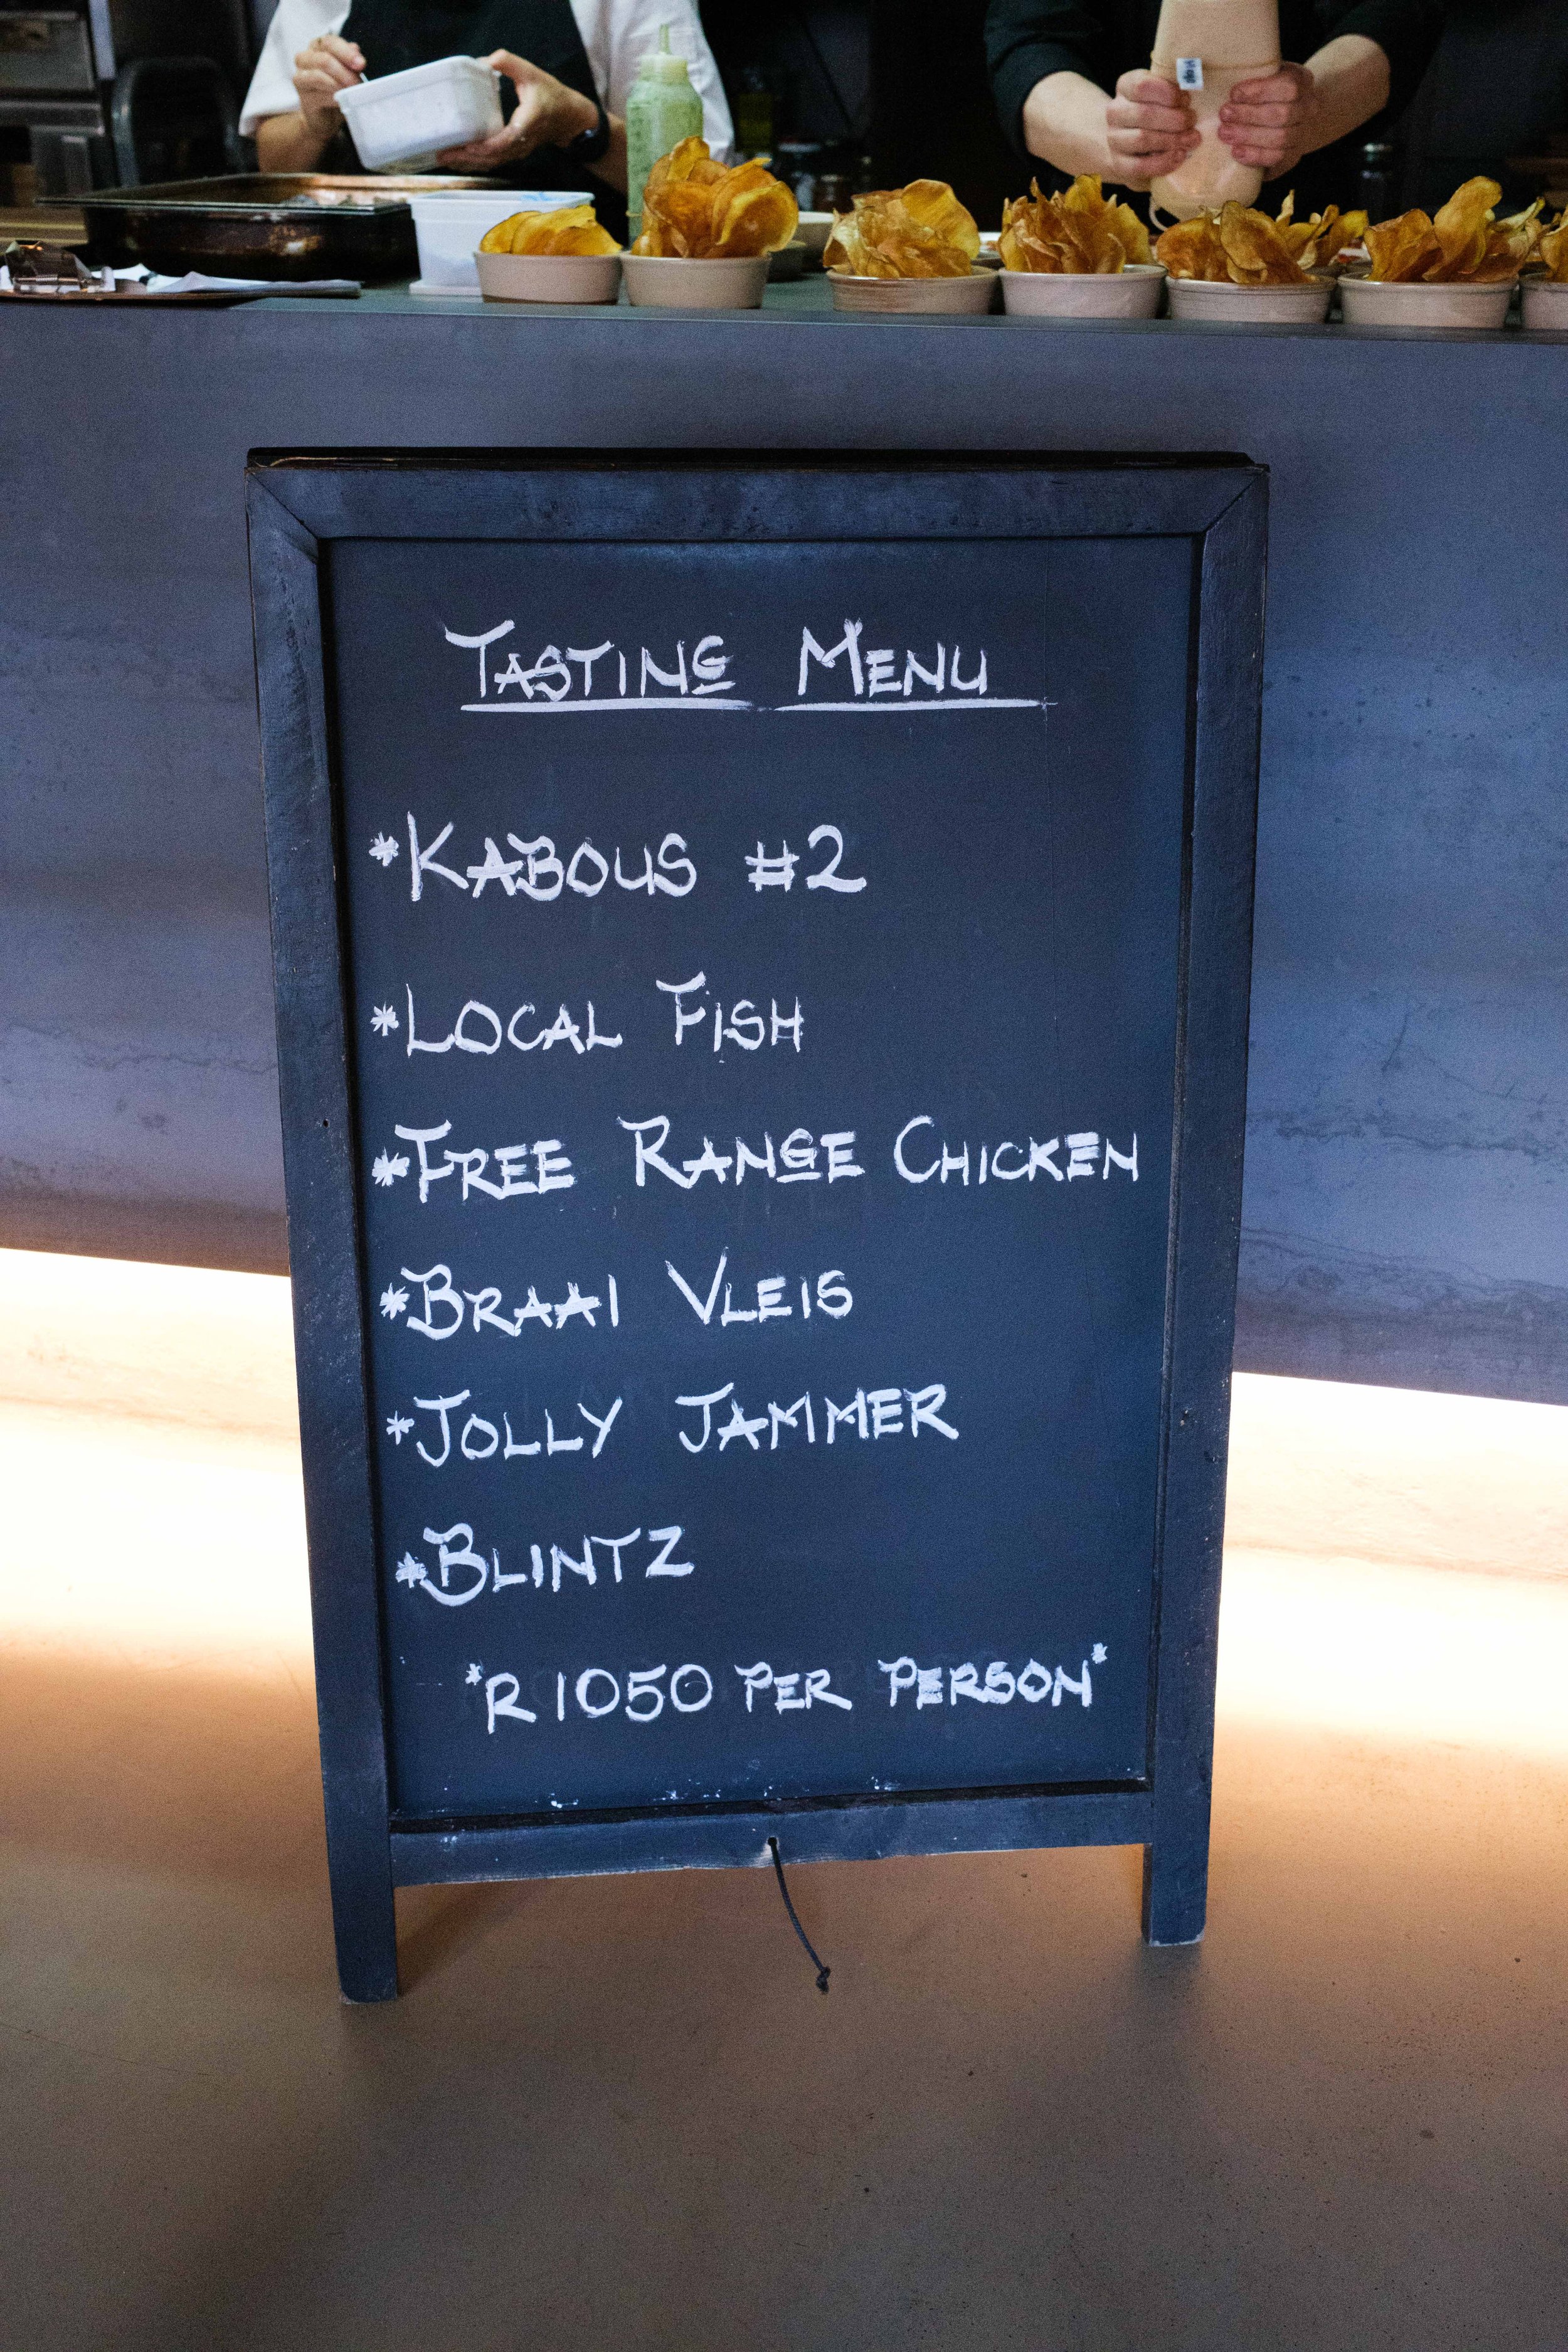 TASTING MENU
*KABOUS #2
*LOCAL FISH
*FREE RANGE CHICKEN
*BRAAI VLEIS
*JOLLY JAMMER
*BLINTZ
*R1050 PER PERSON*